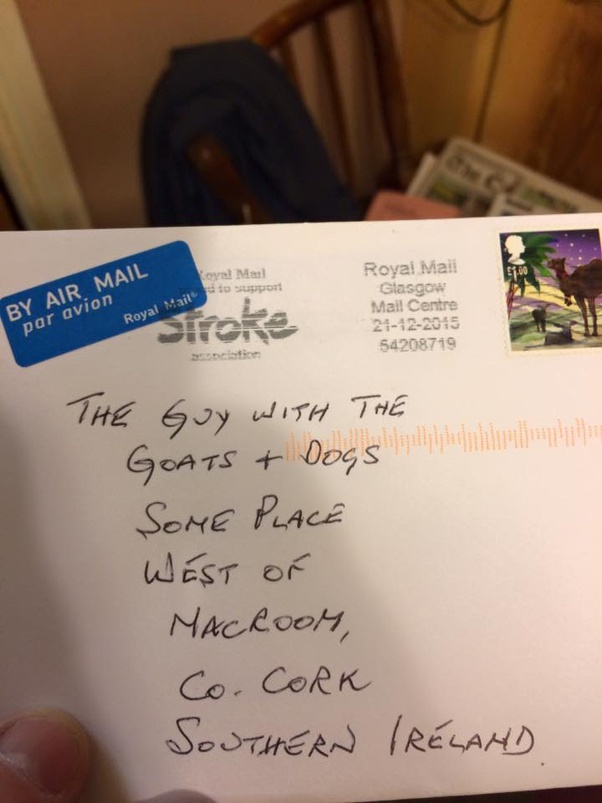 BY AIR MAIL
par avion
Royal Mail®
Royal Mail
to support
Stroke
association
Royal Mail
Glasgow
Mail Centre
21-12-2015
54208719
£1.00
THE GUY WITH THE
GOATS + DOGS
SOME PLACE
WEST OF
MACROOM,
CO. CORK
SOUTHERN IRELAND